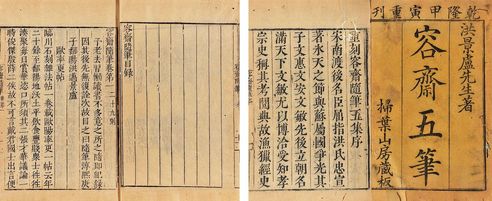 乾隆甲寅重刊
洪景盧先生著
容齋五筆
掃葉山房藏板
重刻容齋隨筆五集序
宋南渡後名臣屈指洪氏忠宣
著冰天之節與蘇屬國爭光其
子文惠文安文敏先後立朝名
滿天下文敏尤以博洽受知孝
宗史稱其考閱典故漁獵經史
容齋隨筆目錄
容齋隨筆卷第一二十九則
予老去習懶讀書不多意之所之隨即紀錄
因其後先無復詮次故目之曰隨筆淳熙庚
子鄱陽洪邁景盧
歐率更帖
臨川石刻雜法帖一卷載歐陽率更一帖云年
二十餘至鄱陽地沃土平飲食豐賤衆士往往
湊聚每日賞華恣口所須其二張才華議論一
時俊傑殷薛二侯故不可言戴君國士出言便